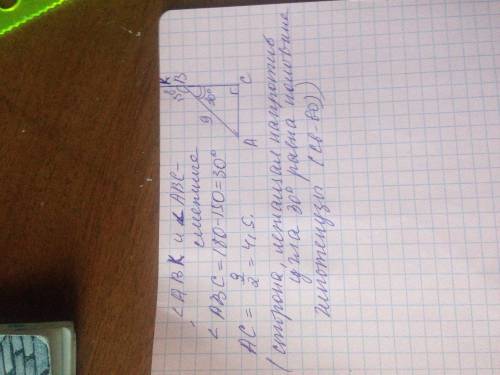 <ABK и <ABC-
смежные
<ABC = 180-150=30°
AC = 9/2 = 4,5.
(сторона, лежащая напротив
угла 30° равна половине
гипотенузы (св-во))
K
B
30°
9
A
C